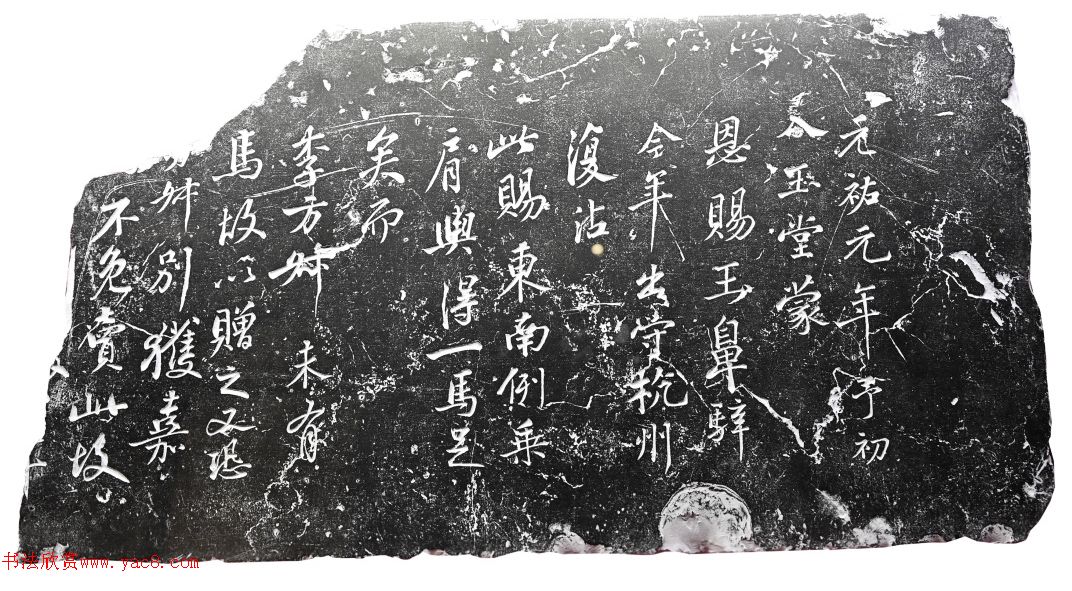 元祐元年予初
入玉堂蒙
恩賜玉鼻騂
今年出守杭州
復沾
此賜東南例乘
肩輿得一馬足
矣而
李方叔未有
馬故以贈之又恐
方叔別獲嘉
馬不免賣此故
书法欣赏www.yac8.com